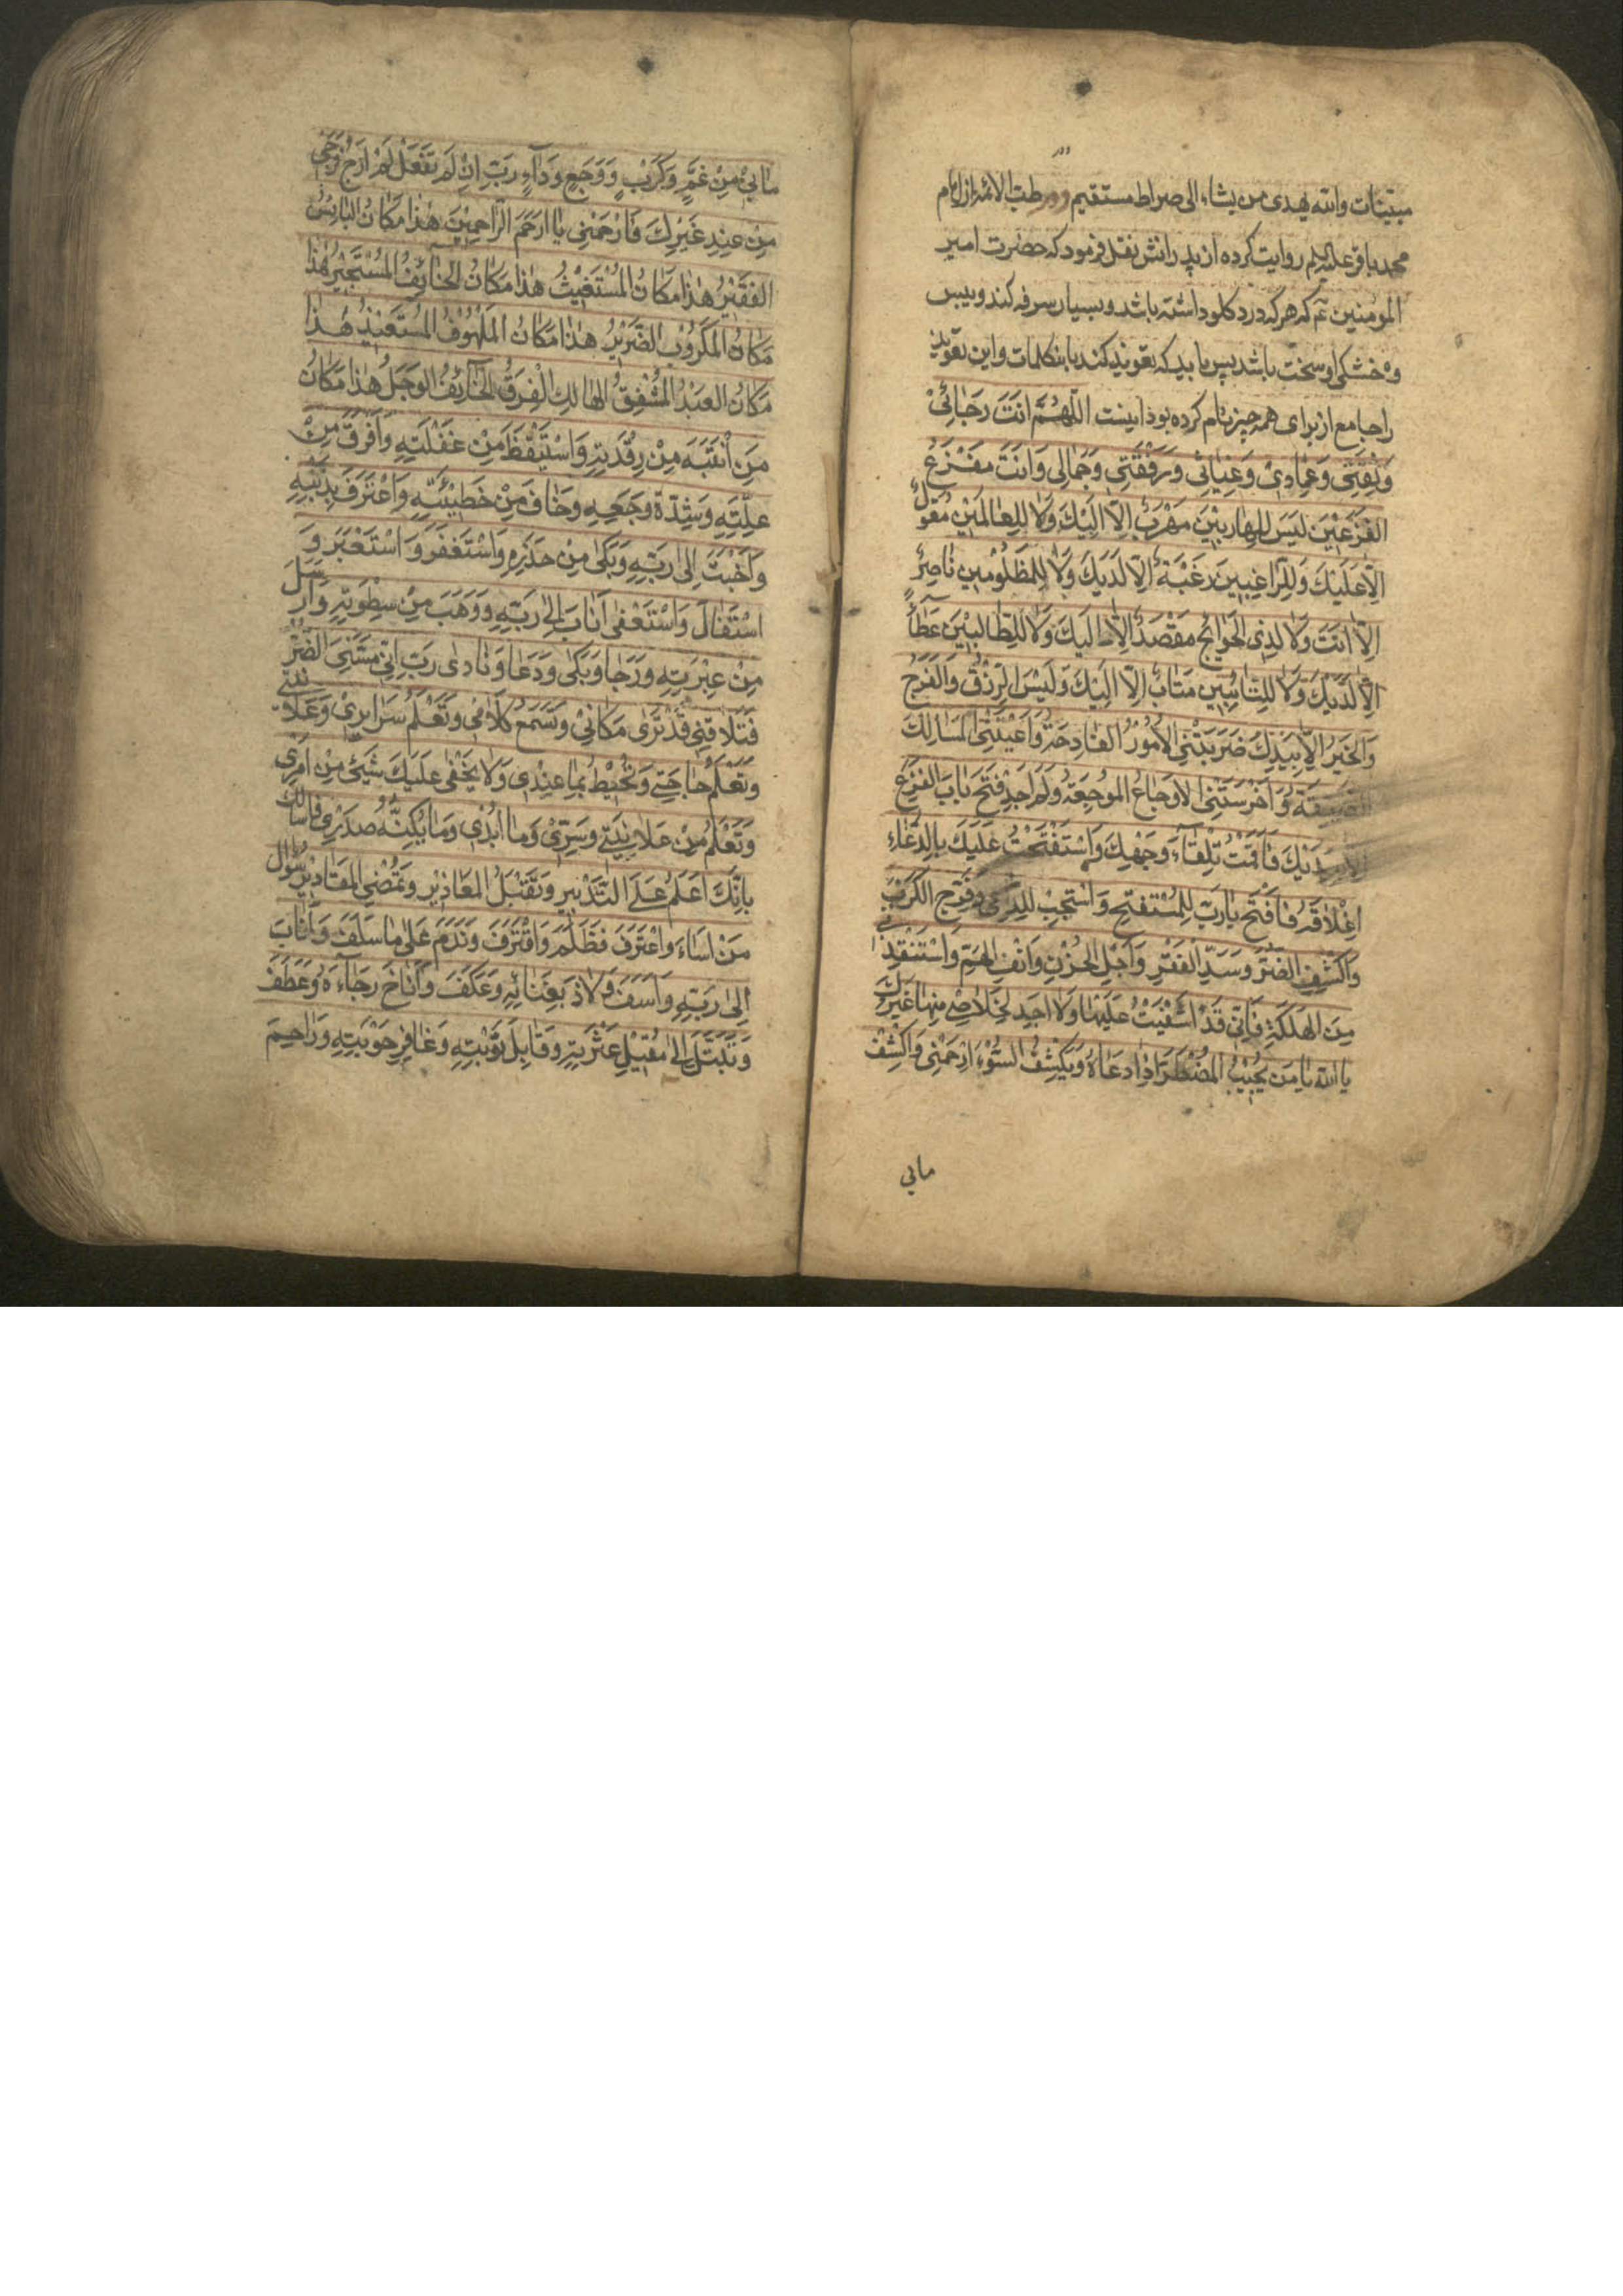 مبینات والله یهدی من یشاء الی صراط مستقیم ودر طب الائمه از امام
محمد باقر علیه السلم روایت کرده از پدرانش نقل فرمود که حضرت امیر
المومنین ع که هر که درد کلو داشته باشد وبسیار سرفه کند ویبس
وخشکی او سخت باشد پس باید که تعویذ کند باینکلمات واین تعویذ
را جامع از برای همه چیز نام کرده بود اینست اَللّهُمَّ اَنْتَ رَجَائِیْ
وَثِقَتِیْ وَعِمَادِیْ وَغِیَاثِیْ وَرَفْقَتِی وَجَمَالِی وَاَنْتَ مَفْزَعُ
الفَزِعِیْنَ لَیْسَ لِلهَارِبِیْنَ مَهْرَبٌ اِلّا اِلَیْكَ وَلَا لِلعَالَمِیْنَ مُعَوَّلٌ
اِلّا عَلَیْكَ وَلِلرَّاغِبِینَ رَغْبَةٌ اِلّا لَدَیْكَ وَلَا لِلمَظْلُوْمِینَ نَاصِرٌ
اِلّا اَنْتَ وَلَا لِذِی الحَوَائِجِ مَقْصَدٌ اِلّا اِلَیْكَ وَلَا لِلطَّالِبِیْنَ عَطَآءٌ
اِلّا لَدَیْكَ وَلَا لِلتَّائِبِینَ مَتَابٌ اِلّا اِلَیْكَ وَلَیْسَ الرِّزْقُ وَالفَرَجُ
وَالخَیْرُ اِلّا بِیَدِكَ ضَرَبَتْنِی الاُمُوْرُ الفَادِحَةُ وَاَعْیَتْنِی المَسَالِكُ
الضَّیِّقَةُ وَاَخْرَسَتْنِی الاَوْجَاعُ المُوْجِعَةُ وَلَمْ اَجِدْ فَتْحَ بَابِ الفَزَعِ
اِلّا بِیَدَیْكَ فَاَقَمْتُ تِلْقَآءَ وَجْهِكَ وَاسْتَفْتَحْتُ عَلَیْكَ بِالدُّعَاءِ
اِغْلَاقَهُ فَافْتَحْ یَارَبِّ لِلمُسْتَفْتِحِ وَاسْتَجِبْ لِلدَّاعِی وَفَرِّجِ الکَرْبَ
وَاکْشِفِ الضُّرَّ وَسُدَّ الفَقْرَ وَاَجْلِ الحُزْنَ وَانْفِ الهَمَّ وَاسْتَنْقِذْنِی
مِنَ الهَلَکَةِ فَاِنّی قَدْ اَشْفَیْتُ عَلَیْهَا وَلَا اَجِدُ لِخَلَاصِی مِنْهَا غَیْرَكَ
یَا اَللهُ یَا مَن یُجِیْبُ المُضْطَرَّ اِذَا دَعَاهُ وَیَکْشِفُ السُّوْءَ اِرْحَمْنِی وَاکْشِفْ
مابی
مَابِیْ مِنْ غَمٍّ وَکَرْبٍ وَوَجَعٍ وَدَآءٍ رَبِّ اِنْ لَمْ تَفْعَلْ لَمْ اَرْجُ فَرَجِی
مِنْ عِنْدِ غَیْرِكَ فَارْحَمْنِی یَا اَرْحَمَ الرَّاحِمِیْنَ هٰذَا مَکَانُ البَائِسِ
الفَقِیْرِ هٰذَا مَکَانُ المُسْتَغِیْثِ هٰذَا مَکَانُ الخَائِفِ المُسْتَجِیْرِ هٰذَا
مَکَانُ المَکْرُوْبِ الضَّرِیْرِ هٰذَا مَکَانُ المَلْهُوْفِ المُسْتَعِیْذِ هٰذَا
مَکَانُ العَبْدِ المُشْفِقِ الهَالِكِ الفَرِقِ الخَائِفِ الوَجِلِ هٰذَا مَکَانُ
مَنِ انْتَبَهَ مِنْ رِقْدَتِهِ وَاسْتَیْقَظَ مِنْ غَفْلَتِهِ وَاَفْرَقَ مِنْ
عِلَّتِهِ وَشِدَّةِ وَجَعِهِ وَخَافَ مِنْ خَطِیْئَتِهِ وَاعْتَرَفَ بِذَنْبِهِ
وَاَخْبَتَ اِلٰی رَبِّهِ وَبَکٰی مِنْ حَذَرِهِ وَاسْتَغْفَرَ وَاسْتَعْبَرَ وَ
اسْتَقَالَ وَاسْتَعْفٰی اَنَابَ اِلٰی رَبِّهِ وَرَهِبَ مِنْ سِطْوَتِهِ وَاَرْسَلَ
مِنْ عِبْرَتِهِ وَرَجَا وَبَکٰی وَدَعَا وَنَادٰی رَبِّ اِنّی مَسَّنِیَ الضُّرُّ
فَتَلَافَنِی قَدْ تَرٰی مَکَانِیْ وَتَسْمَعُ کَلَامِی وَتَعْلَمُ سَرَائِرِیْ وَعَلَانِیَتِی
وَتَعْلَمُ حَاجَتِی وَتُحِیْطُ بِمَا عِنْدِی وَلَا یَخْفٰی عَلَیْكَ شَیْئٌ مِنْ اَمْرِی
وَتَعْلَمُ مِنْ عَلَانِیَتِی وَسِرِّیْ وَمَا اُبْدِی وَمَا یُکِنُّهُ صَدْرِی فَاَسْاَلُكَ
بِاَنَّكَ اَعْلَمُ عَلَی التَّدْبِیرِ وَتَقْبَلُ المَعَاذِیْرَ وَتَمْضِی المَقَادِیْرَ سُوَالَ
مَنْ اَسَاءَ وَاعْتَرَفَ فَظَلَمَ وَاقْتَرَفَ وَنَدِمَ عَلٰی مَا سَلَفَ وَاَنَابَ
اِلٰی رَبِّهِ وَاَسِفَ وَلَاذَ بِفِنَائِهِ وَعَکَفَ وَاَنَاخَ رَجَآءَهُ وَعَطَفَ
وَتَبَتَّلَ اِلٰی مُقِیْلِ عَثْرَتِهِ وَقَابِلِ تَوْبَتِهِ وَغَافِرِ حَوْبَتِهِ وَرَاحِمِ